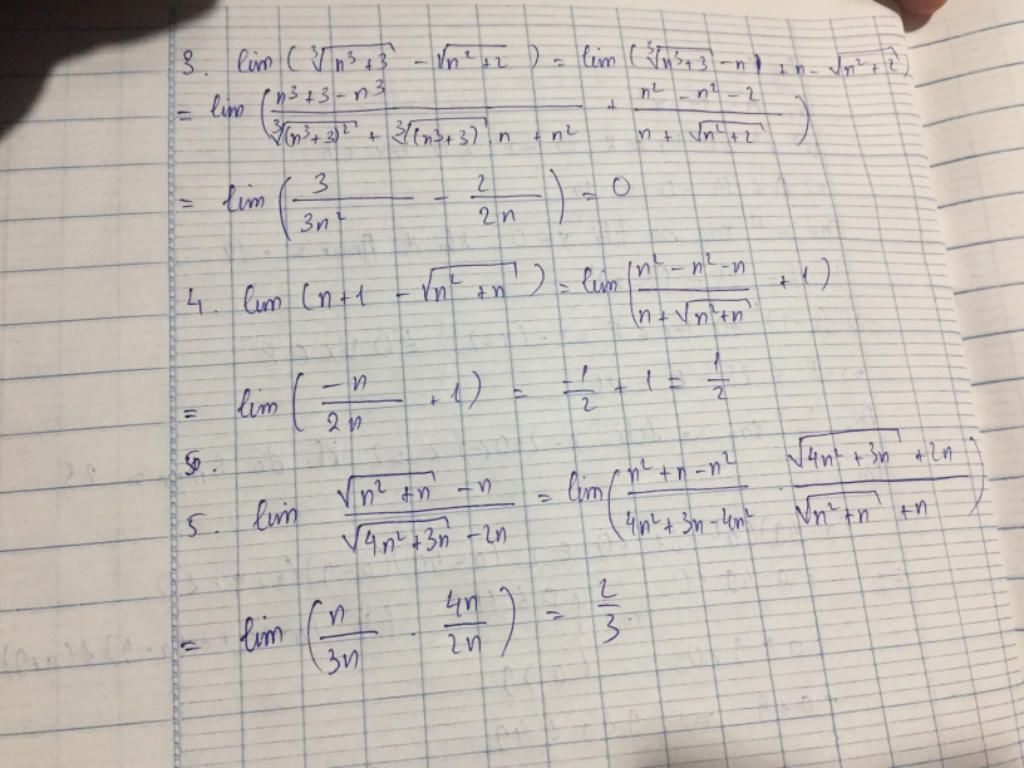 3. lim (∛(n³+3) - √(n²+2)) = lim (∛(n³+3) - n) + n - √(n²+2))
= lim ((n³+3-n³)/(∛(n³+3)² + ∛(n³+3) n + n²) + (n²-n²-2)/(n+√(n²+2)))
= lim (3/(3n²) - 2/(2n)) = 0
4. lim (n+1 - √(n²+n)) = lim ((n²-n²-n)/(n+√(n²+n)) + 1)
= lim (-n/(2n) + 1) = -1/2 + 1 = 1/2
5.
5. lim (√(n²+n) - n)/(√(4n²+3n) - 2n) = lim ((n²+n-n²)/(4n²+3n-4n²) · (√(4n²+3n) + 2n)/(√(n²+n) + n))
= lim (n/(3n) · 4n/(2n)) = 2/3